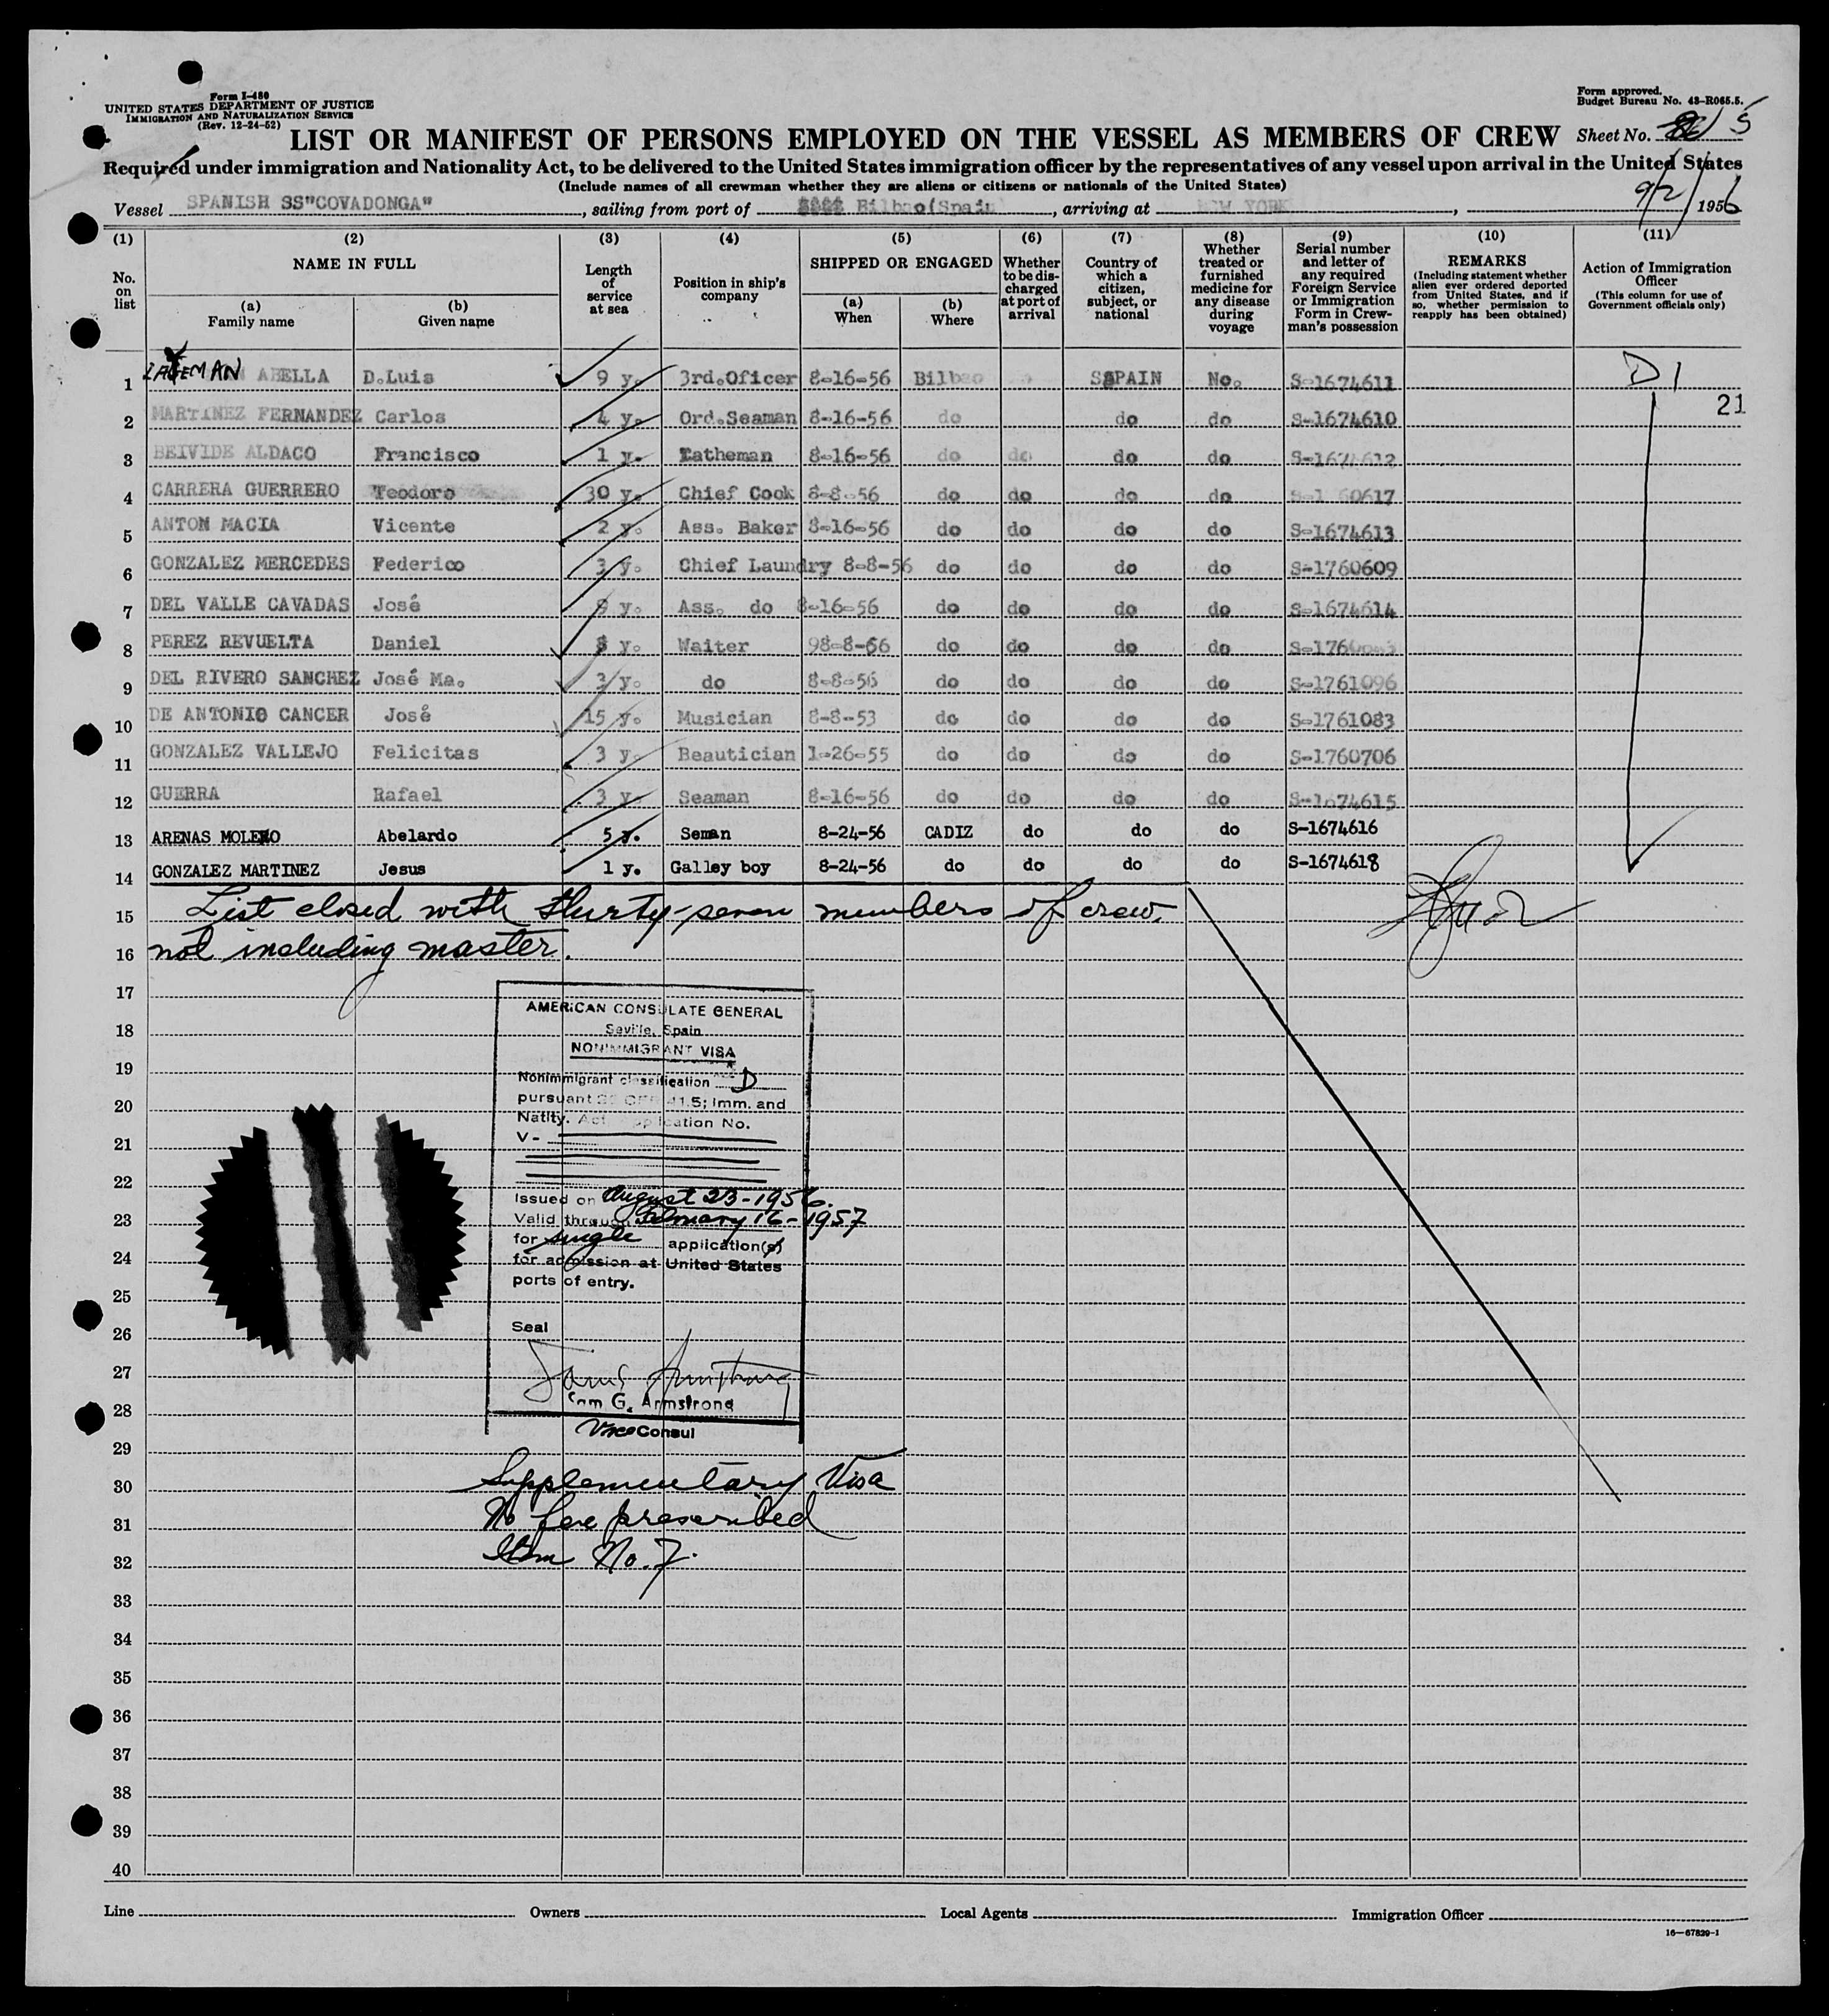 Form I-480
UNITED STATES DEPARTMENT OF JUSTICE
IMMIGRATION AND NATURALIZATION SERVICE
(Rev. 12-24-52)
Form approved.
Budget Bureau No. 43-R065.5.
LIST OR MANIFEST OF PERSONS EMPLOYED ON THE VESSEL AS MEMBERS OF CREW Sheet No. 5
Required under immigration and Nationality Act, to be delivered to the United States immigration officer by the representatives of any vessel upon arrival in the United States
(Include names of all crewman whether they are aliens or citizens or nationals of the United States)
Vessel SPANISH SS"COVADONGA", sailing from port of Bilbao(Spain, arriving at NEW YORK, 9/2/1956
(1) (2) (3) (4) (5) (6) (7) (8) (9) (10) (11)
No. on list
NAME IN FULL
(a) Family name
(b) Given name
Length of service at sea
Position in ship's company
SHIPPED OR ENGAGED
(a) When
(b) Where
Whether to be discharged at port of arrival
Country of which a citizen, subject, or national
Whether treated or furnished medicine for any disease during voyage
Serial number and letter of any required Foreign Service or Immigration Form in Crewman's possession
REMARKS
(Including statement whether alien ever ordered deported from United States, and if so, whether permission to reapply has been obtained)
Action of Immigration Officer
(This column for use of Government officials only)
1 ABELLA D.Luis 9 y. 3rd.Oficer 8-16-56 Bilbao SPAIN No. S-1674611 D1
21
2 MARTINEZ FERNANDEZ Carlos 4 y. Ord.Seaman 8-16-56 do do do S-1674610
3 BEIVIDE ALDACO Francisco 1 y. 8-16-56 do do do do S-1674612
4 CARRERA GUERRERO Teodoro 30 y. Chief Cook 8-8-56 do do do do
5 ANTON MACIA Vicente 2 y. Ass. Baker 8-16-56 do do do do S-1674613
6 GONZALEZ MERCEDES Federico 3 y. Chief Laundry 8-8-56 do do do do S-1760609
7 DEL VALLE CAVADAS José 9 y. Ass. do 8-16-56 do do do do S-1674614
8 PEREZ REVUELTA Daniel y. Waiter 98-8-56 do do do do
9 DEL RIVERO SANCHEZ José Ma. 3 y. do 8-8-56 do do do do S-1761096
10 DE ANTONIO CANCER José 15 y. Musician 8-8-53 do do do do S-1761083
11 GONZALEZ VALLEJO Felicitas 3 y. Beautician 1-26-55 do do do do S-1760706
12 GUERRA Rafael 3 y. Seaman 8-16-56 do do do do S-1674615
13 ARENAS MOLERO Abelardo 5 y. Seman 8-24-56 CADIZ do do do S-1674616
14 GONZALEZ MARTINEZ Jesus 1 y. Galley boy 8-24-56 do do do do S-1674618
15 List closed with thirty-seven members of crew,
16 not including master.
17
18
19
20
21
22
23
24
25
26
27
28
29
30
31
32
33
34
35
36
37
38
39
40
AMERICAN CONSULATE GENERAL
Seville, Spain
NONIMMIGRANT VISA
Nonimmigrant classification D
pursuant 22 CFR 41.5; Imm. and
Natity. Act Application No.
V-
Issued on August 23-1956.
Valid through February 16-1957
for single application(s)
for admission at United States
ports of entry.
Seal
Sam G. Armstrong
Vice Consul
Supplementary Visa
No fee prescribed
Item No. 7.
Line Owners Local Agents Immigration Officer
16—67829-1